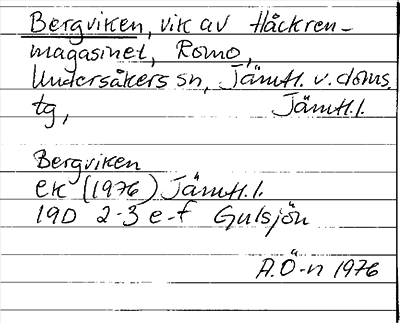 Bergviken, vik av Håckren-
magasinet, Romo,
Undersåkers sn, Jämtl. v. doms.
tg, Jämtl.l.
Bergviken
ek (1976) Jämtl.l.
19D 2-3 e-f Gulsjön
A.Ö-n 1976